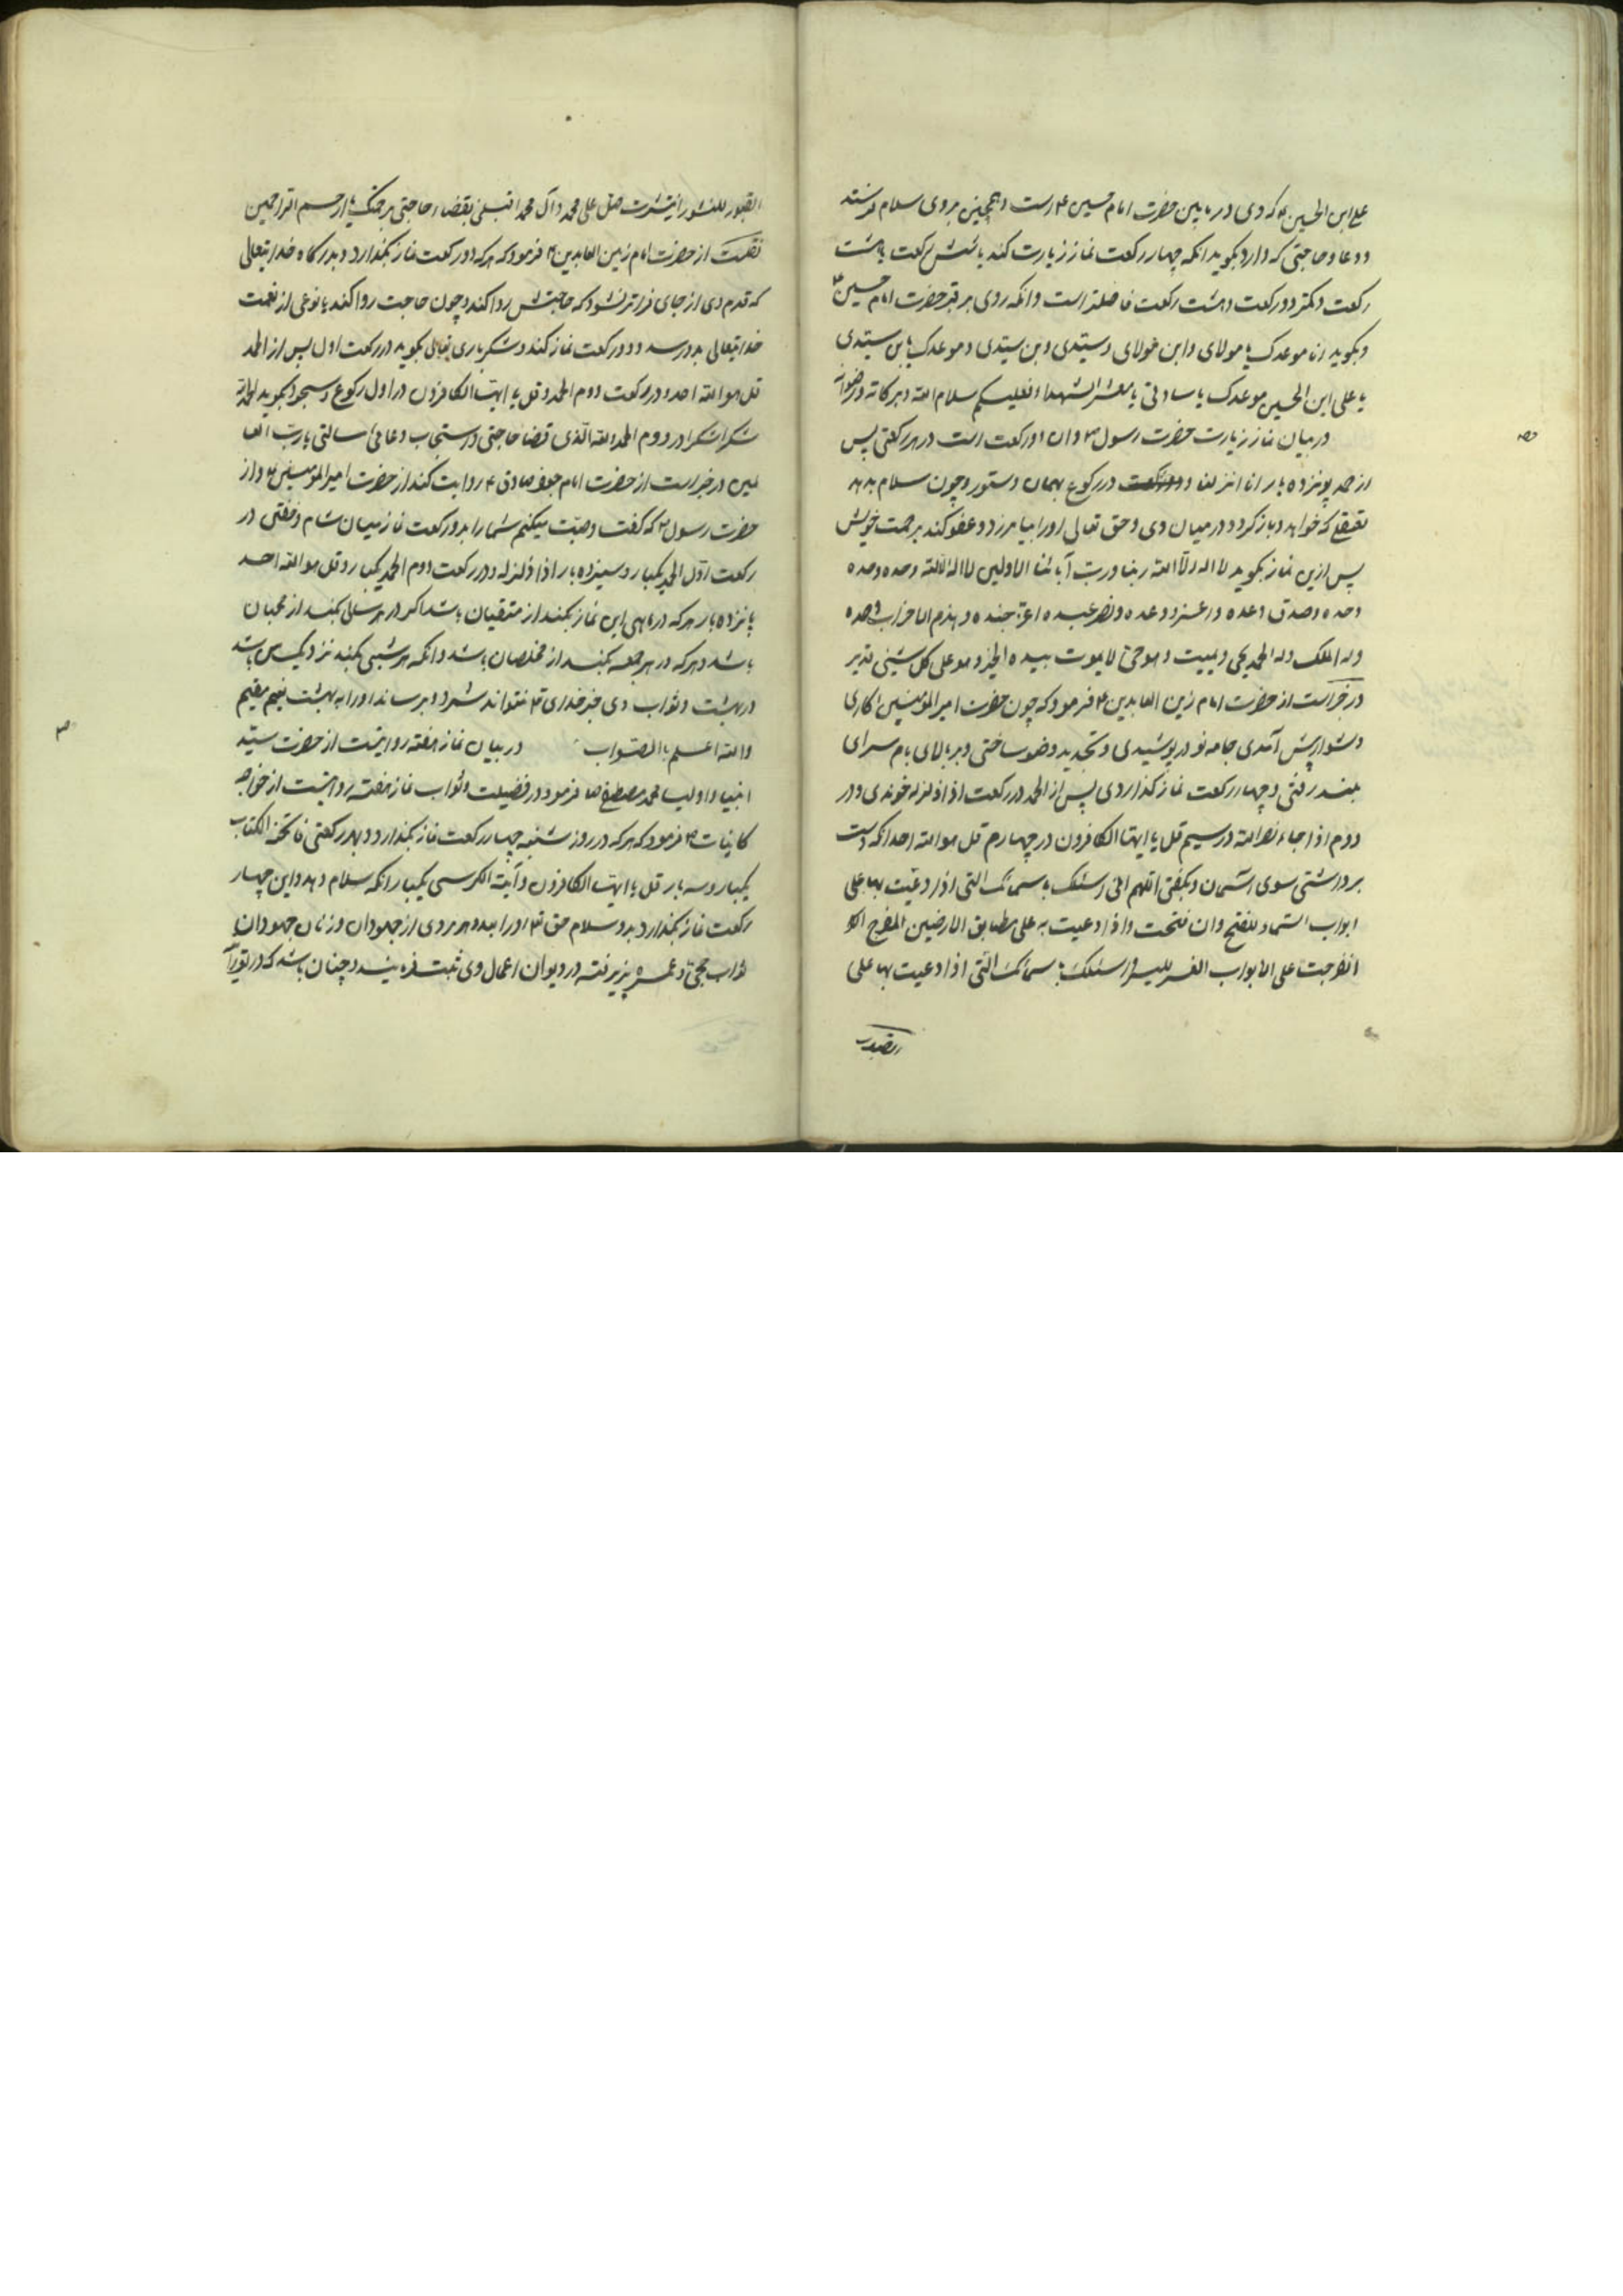 علی ابن الحسین ع که وی در پایین حضرت امام حسین ع است و همچنین بروی سلام فرستد
و دعا و حاجتی که دارد بگوید انکه چهار رکعت نماز زیارت کند یا شش رکعت یا هشت
رکعت و کمتر دو رکعت و هشت رکعت فاضلتر است وانکه روی بر قبر حضرت امام حسین ع
و بگوید انا موعدک یا مولای وابن مولای و سیدی وبن سیدی و موعدک یا بن سیدی
یا علی ابن الحسین موعدک یا ساداتی یا معشر الشهدا فعلیکم سلام الله و برکاته و رضوانه
در بیان نماز زیارت حضرت رسول ص وان دو رکعت است در هر رکعتی پس
از حمد پونزده بار انا انزلنا و در رکوع بهمان دستور و چون سلام بدهد
که خواهد و باز گردد در میان وی و حق تعالی اورا بیامرزد و عفو کند برحمت خویش
پس ازین نماز بگوید لا اله الا الله ربنا ورب آبائنا الاولین لا اله الا الله وحده وحده
وحده وصدق وعده و ونصر عبده اعز جنده وهزم الاحزاب وحده
وله الملک وله الحمد یحی ویمیت وهو حی لا یموت بیده الخیر وهو علی کل شیئی قدیر
در خبر است از حضرت امام زین العابدین ع فرمود که چون حضرت امیرالمومنین را کاری
دشوار پیش آمدی جامه نو در پوشیدی و تجدید وضو ساختی و بر بالای بام سرای
بلند رفتی و چهار رکعت نماز گذاردی پس از الحمد در رکعت اذا زلزله خوندی و در
دوم اذا جاء نصرالله و در سیم قل یا ایها الکافرون در چهارم قل هو الله احد انکه دست
برداشتی سوی آسمان و بگفتی اللهم انی اسئلک باسمائک التی اذا دعیت بها علی
ابواب السماء للفتح وان فتحت واذا دعیت به علی مطابق الارضین المفرج
انفرجت علی الابواب العسر للیسر واسئلک باسمائک التی اذا دعیت بها علی
القبور
القبور للنشور انتشرت صل علی محمد وآل محمد اقبلنی بقضاء حاجتی برحمتک یا ارحم الراحمین
نقلست از حضرت امام زین العابدین ع فرمود که هر که دو رکعت نماز بگذارد و بدرگاه خدایتعالی
که قدم وی از جای فراتر نشود که حاجتش روا کند و چون حاجت روا کند یا نوعی از نعمت
خدایتعالی بدو رسد و دو رکعت نماز کند و شکر باری تعالی بگوید در رکعت اول پس از الحمد
قل هو الله احد و در رکعت دوم الحمد و قل یا ایها الکافرون در اول رکوع و سجود بگوید الحمد لله
شکرا شکرا و در دوم الحمد لله الذی قضا حاجتی و استجاب دعائی سالتی یا رب العا
لمین در خبر است از حضرت امام جعفر صادق ع روایت کند از حضرت امیرالمومنین ع و از
حضرت رسول ص که گفت وصیت میکنم شما را بدو رکعت نماز میان شام و خفتن در
رکعت اول الحمد یکبار و سیزده بار اذا زلزله و در رکعت دوم الحمد یکبار و قل هو الله احد
پانزده بار هر که در ماهی این نماز بکند از متقیان باشد اگر در هر سالی بکند از محبان
باشد و هر که در هر جمعه بکند از مخلصان باشد وانکه هر شبی بکند نزدیک من باشد
در بهشت و ثواب وی جز خدای تع نتواند شمرد و برساند اورا به بهشت نعیم مقیم
والله اعلم باالصواب در بیان نماز هفته روایتست از حضرت سید
انبیا و اولیا محمد مصطفی ص فرمود در فضیلت و ثواب نماز هفته روایتست از خواجه
کائنات ص فرمود که هر که در روز شنبه چهار رکعت نماز بگذارد و بهر رکعتی فاتحة الکتاب
یکبار و سه بار قل یا ایها الکافرون و آیة الکرسی یکبار انکه سلام دهد و این چهار
رکعت نماز بگذارد بدو سلام حق تع اورا بعدد هر مردی از جهودان و زنان جهودان
ثواب حجی و عمره پزیرفته در دیوان اعمال وی ثبت فرمایند و چنان باشد که در توریة